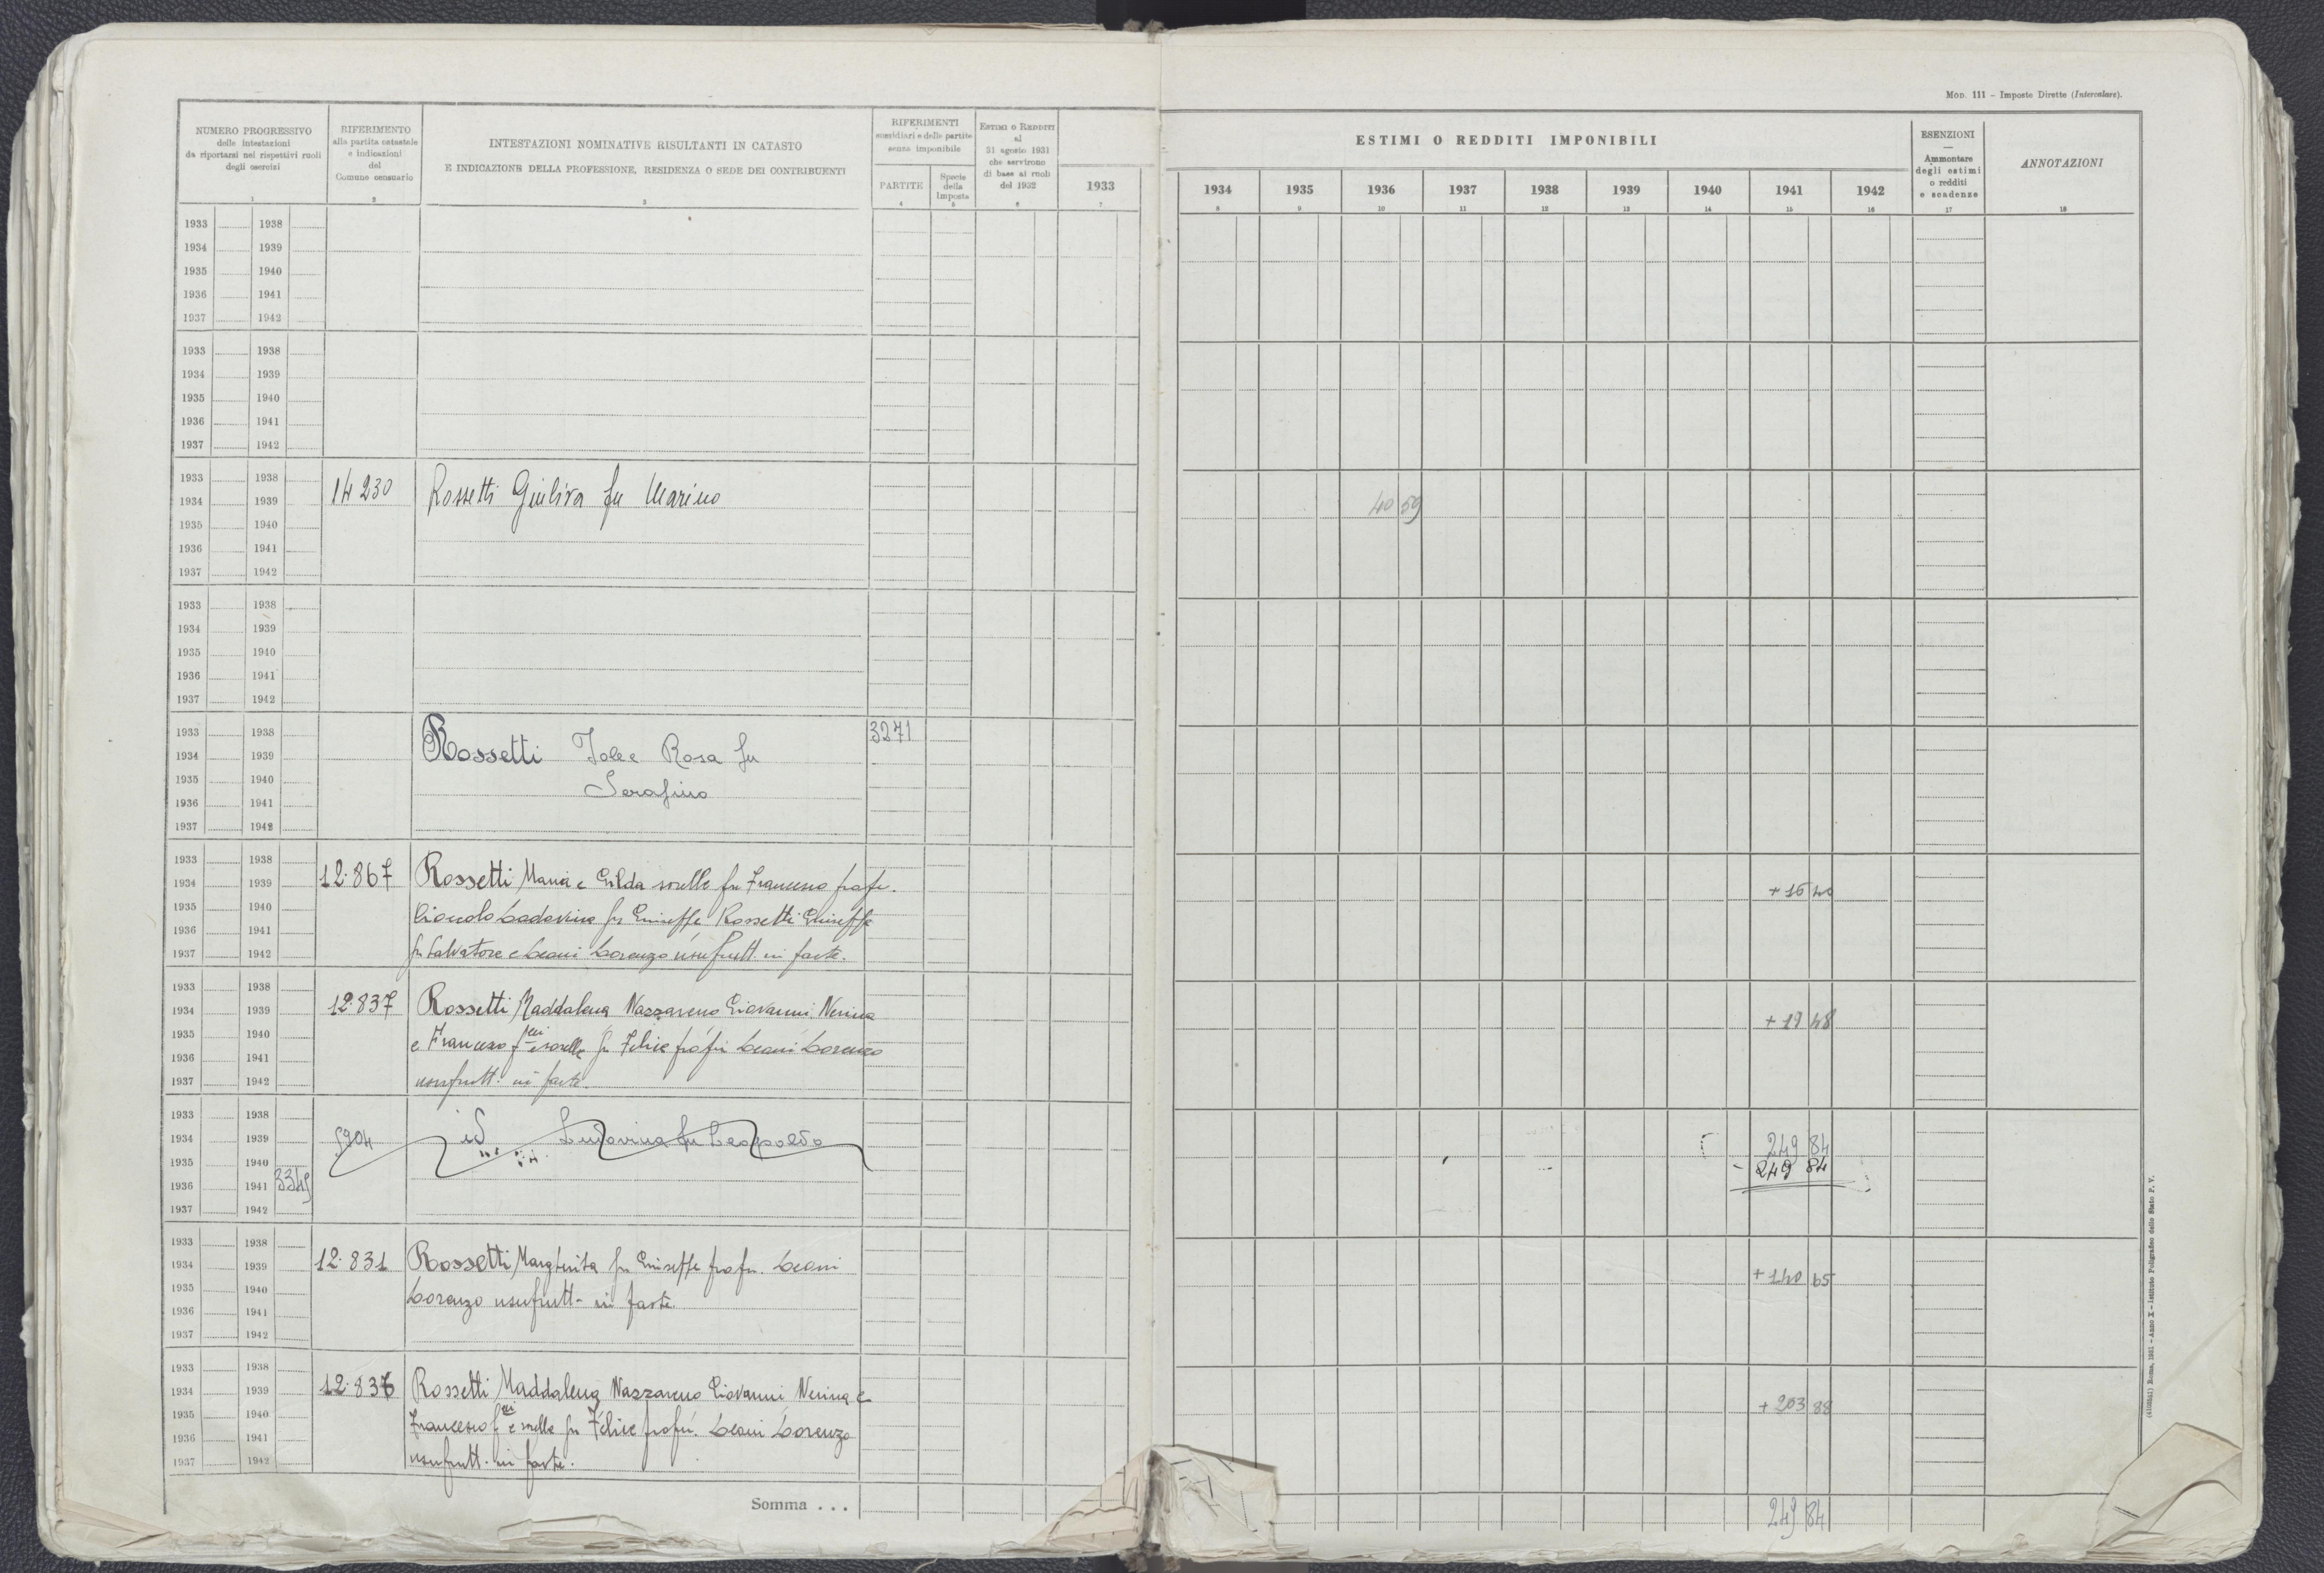 Mod. 111 - Imposte Dirette (Intercalare).
NUMERO PROGRESSIVO
delle intestazioni
da riportarsi nei rispettivi ruoli
degli esercizi
1
RIFERIMENTO
alla partita catastale
e indicazioni
del
Comune censuario
2
INTESTAZIONI NOMINATIVE RISULTANTI IN CATASTO
E INDICAZIONE DELLA PROFESSIONE, RESIDENZA O SEDE DEI CONTRIBUENTI
3
RIFERIMENTI
sussidiari e delle partite
senza imponibile
PARTITE
4
Specie
della
Imposta
5
Estimi o Redditi
al
31 agosto 1931
che servirono
di base ai ruoli
del 1932
6
1933
7
ESTIMI O REDDITI IMPONIBILI
1934 1935 1936 1937 1938 1939 1940 1941 1942
8 9 10 11 12 13 14 15 16
ESENZIONI
—
Ammontare
degli estimi
o redditi
e scadenze
17
ANNOTAZIONI
18
1933 1938
1934 1939
1935 1940
1936 1941
1937 1942
1933 1938
1934 1939
1935 1940
1936 1941
1937 1942
1933 1938
1934 1939 14230 Rossetti Giuliva fu Marino 40 59
1935 1940
1936 1941
1937 1942
1933 1938
1934 1939
1935 1940
1936 1941
1937 1942
1933 1938 3271
1934 1939 Rossetti Iolee Rosa fu
1935 1940
1936 1941 Serafino
1937 1942
1933 1938
1934 1939 12.867 Rossetti Maria e Gilda sorelle fu Francesco + 16 40
1935 1940 fu Giuseppe Rossetti Giuseppe
1936 1941
1937 1942 fu Salvatore e Leani Lorenzo usufrutt. in parte.
1933 1938
1934 1939 12.837 Rossetti Maddalena Nazzareno Giovanni Nerina + 19 48
1935 1940 e Francesco f.lli e sorelle fu Felice Leani Lorenzo
1936 1941
1937 1942 usufrutt. in parte.
1933 1938
1934 1939 5904 id. Ludovina fu Leopoldo 249 84
1935 1940 - 249 84
1936 1941 3345
1937 1942
1933 1938
1934 1939 12.831 Rossetti Margherita fu Giuseppe Leani + 140 65
1935 1940 Lorenzo usufrutt. in parte
1936 1941
1937 1942
1933 1938
1934 1939 12.836 Rossetti Maddalena Nazzareno Giovanni Nerina e + 203 88
1935 1940 Francesco f.lli e sorelle fu Felice Leani Lorenzo
1936 1941
1937 1942 usufrutt. in parte.
Somma . . . 249 84
Roma, 1931 - Anno X - Istituto Poligrafico dello Stato P. V.